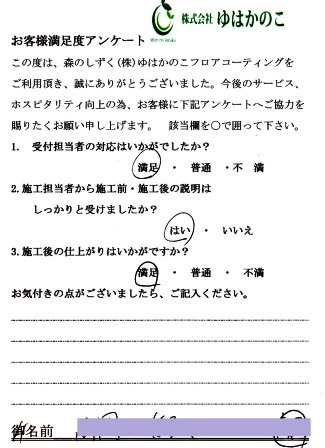 株式会社 ゆはかのこ
お客様満足度アンケート
この度は、森のしずく(株)ゆはかのこフロアコーティングを
ご利用頂き、誠にありがとうございました。今後のサービス、
ホスピタリティ向上の為、お客様に下記アンケートへご協力を
賜りたくお願い申し上げます。　該当欄を○で囲って下さい。
1.　受付担当者の対応はいかがでしたか？
満足　・　普通　・不　満
2.施工担当者から施工前・施工後の説明は
しっかりと受けましたか？
はい　・　いいえ
3.施工後の仕上がりはいかがですか？
満足　・　普通　・　不満
お気付きの点がございましたら、ご記入ください。
御名前